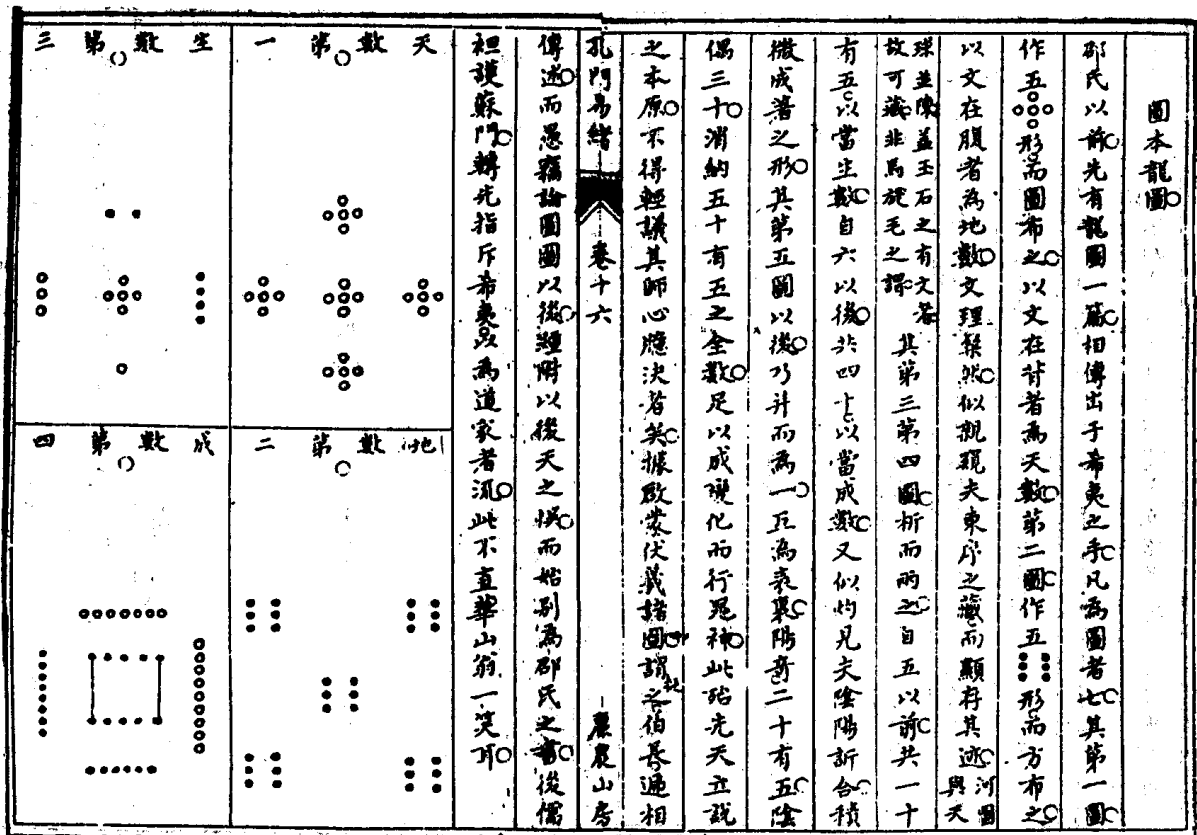 圖本龍圖
邵氏以前先有龍圖一篇相傳出于希夷之手凡為圖者七其第一圖
作五形而圖布之以文在背者為天數第二圖作五形而方布之
以文在腹者為地數文理粲然似親覩夫東序之藏而顯存其迹河圖與天
球並陳蓋玉石之有文者故可藏非馬旋毛之謂其第三第四圖析而兩之自五以前共一十
有五以當生數自六以後共四十以當成數又似灼見夫陰陽訢合積
微成著之形其第五圖以後乃并而為一互為表裏陽奇二十有五陰
偶三十消納五十有五之全數足以成變化而行鬼神此殆先天立說
之本原不得輕議其師心臆決者矣據啟蒙伏羲諸圖謂之伯長遞相
孔門易緒
卷十六
麗農山房
傳述而愚竊論圖圖以後雖附以後天之悞而始別為邵氏之書後儒
袒護蘇門轉先指斥希夷以為道家者流此不直華山翁一笑耳
天數第一
地數第二
生數第三
成數第四